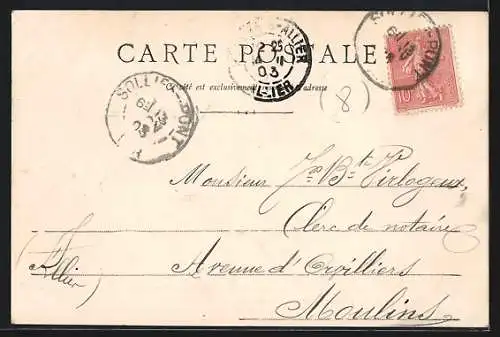 CARTE POSTALE
Ce côté est exclusivement réservé à l'adresse
SOLLIES-PONT
ALLIER
2 25
11
03
SOLLIES-PONT
10
(8)
Monsieur Jn Bte Virlogeux,
Clerc de notaire
Avenue d'Orvilliers
Moulins
(Allier)